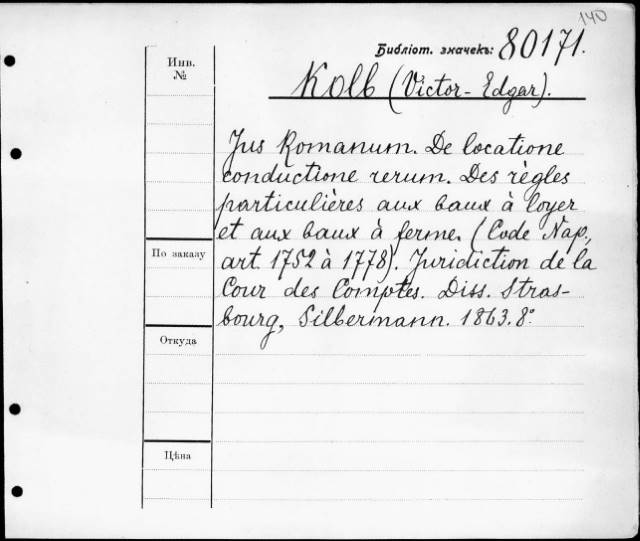 140
Библіот. значекъ: 80171.
Инв.
№
Kolb (Victor-Edgar).
Jus Romanum. De locatione
conductione rerum. Des règles
particulières aux baux à loyer
et aux baux à ferme. (Code Nap.,
По заказу
art. 1752 à 1778). Juridiction de la
Cour des Comptes. Diss. Stras-
bourg, Silbermann. 1863. 8º
Откуда
Цѣна